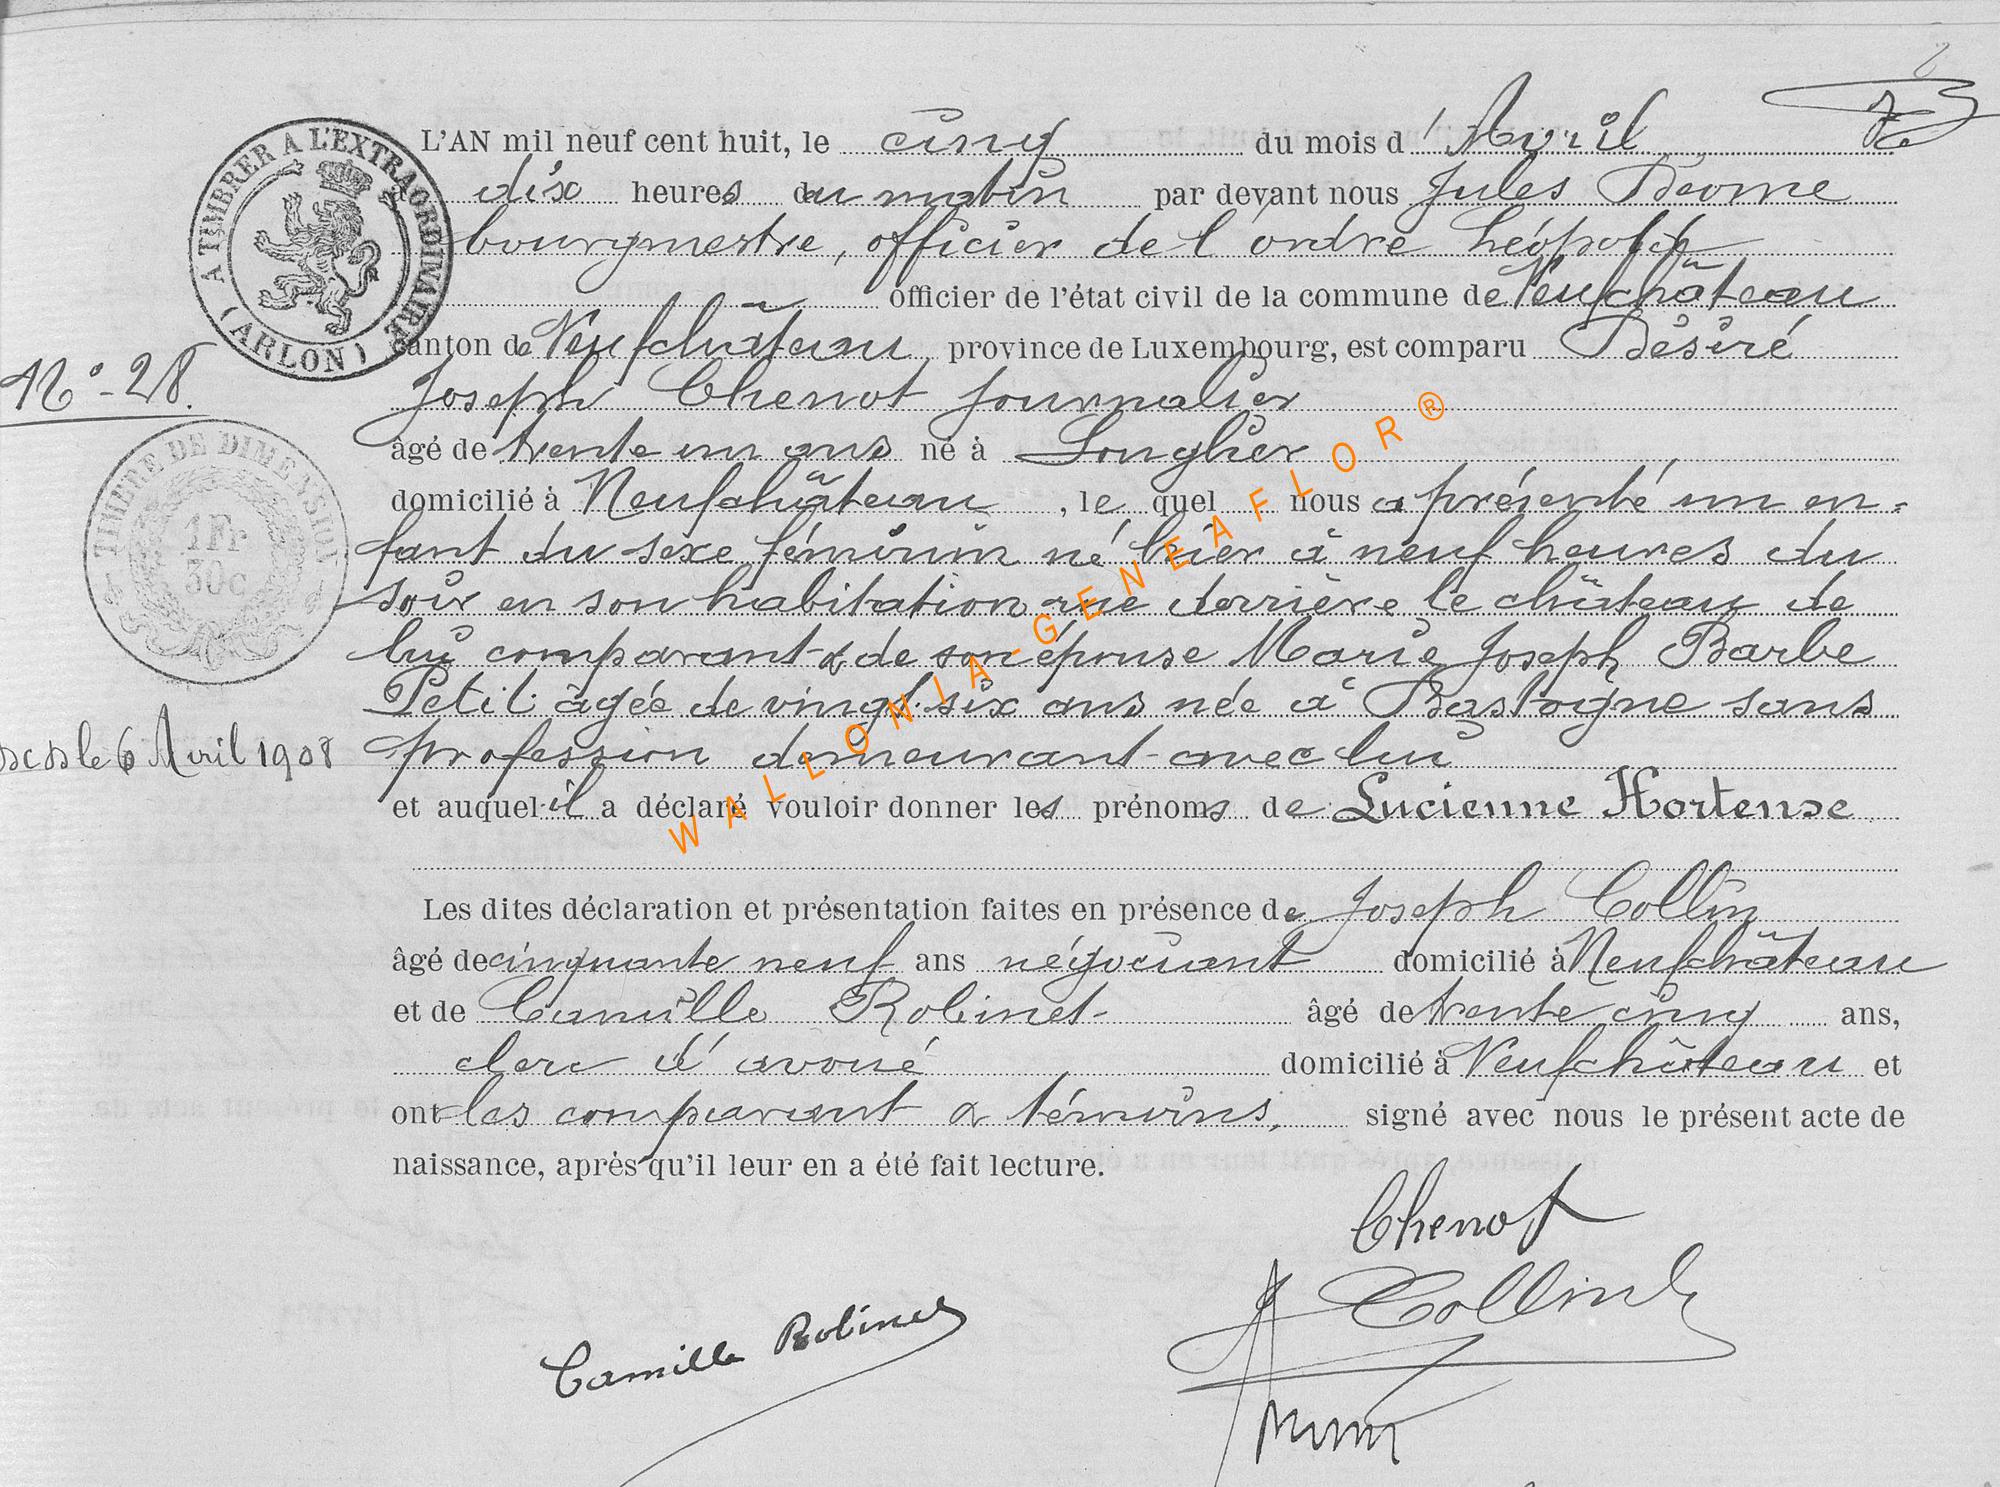 L'AN mil neuf cent huit, le cinq du mois d'Avril
à dix heures du matin par devant nous Jules
bourgmestre, officier de l'ordre Léopold
officier de l'état civil de la commune de Neufchâteau
canton de Neufchâteau, province de Luxembourg, est comparu Désiré
Joseph Chenot journalier
âgé de trente un ans né à Longlier
domicilié à Neufchâteau, le quel nous a présenté un en-
fant du sexe féminin né hier à neuf heures du
soir en son habitation rue derrière le château de
lui comparant & de son épouse Marie Joseph Barbe
Petit âgée de vingt-six ans née à Bastogne sans
profession demeurant avec lui
et auquel il a déclaré vouloir donner les prénoms de Lucienne Hortense
Les dites déclaration et présentation faites en présence de Joseph Collin
âgé de cinquante neuf ans négociant domicilié à Neufchâteau
et de Camille Robinet âgé de trente cinq ans,
clerc d'avoué domicilié à Neufchâteau et
ont les comparant & témoins, signé avec nous le présent acte de
naissance, après qu'il leur en a été fait lecture.
Chenot
Collin
Camille Robinet
A TIMBRER A L'EXTRAORDINAIRE
(ARLON)
No - 28.
TIMBRE DE DIMENSION
1Fr
30c
le 6 Avril 1908
WALLONIA-GENEAFLOR®